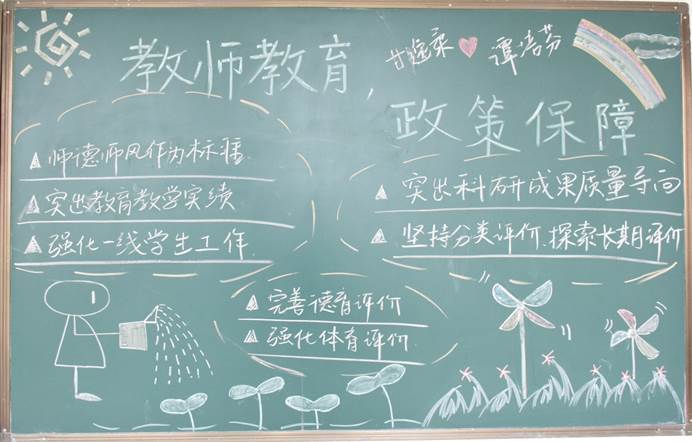 教师教育,
政策保障
谭洁芬
师德师风作为标准
突出教育教学实绩
强化一线学生工作
突出科研成果质量导向
坚持分类评价、探索长期评价
完善德育评价
强化体育评价